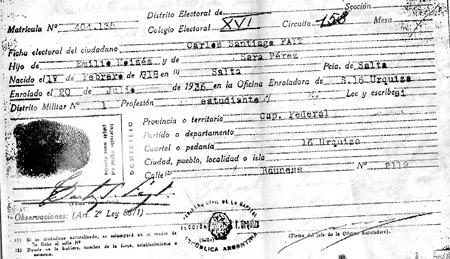 Distrito Electoral de
Sección
Matrícula Nº 404.136 Colegio Electoral XVI Circuito 158 Mesa
Ficha electoral del ciudadano Carlos Santiago FAYT
Hijo de Emilio Moisés y de Sara Pérez
Nacido el 1º febrero 918 en Salta Pcia. de Salta
Enrolado el 20 de Julio de 1936 en la Oficina Enroladora de S.16 Urquiza
Distrito Militar Nº 1 Profesión estudiante Lee y escribe si
DOMICILIO
Provincia o territorio Cap. Federal
Partido o departamento
Cuartel o pedanía 16 Urquiza
Ciudad, pueblo, localidad o isla
Calle (2) Nº 2119
Observaciones: (Art. 2º Ley
CIVIL DE LA CAPITAL
REPÚBLICA ARGENTINA
(Sello)
(Firma del jefe de la Oficina Enroladora).
(1) Si es ciudadano naturalizado, se estampará en el medio de la ficha el sello
(2) Donde no la hubiera, nombre de la finca, establecimiento o estancia.